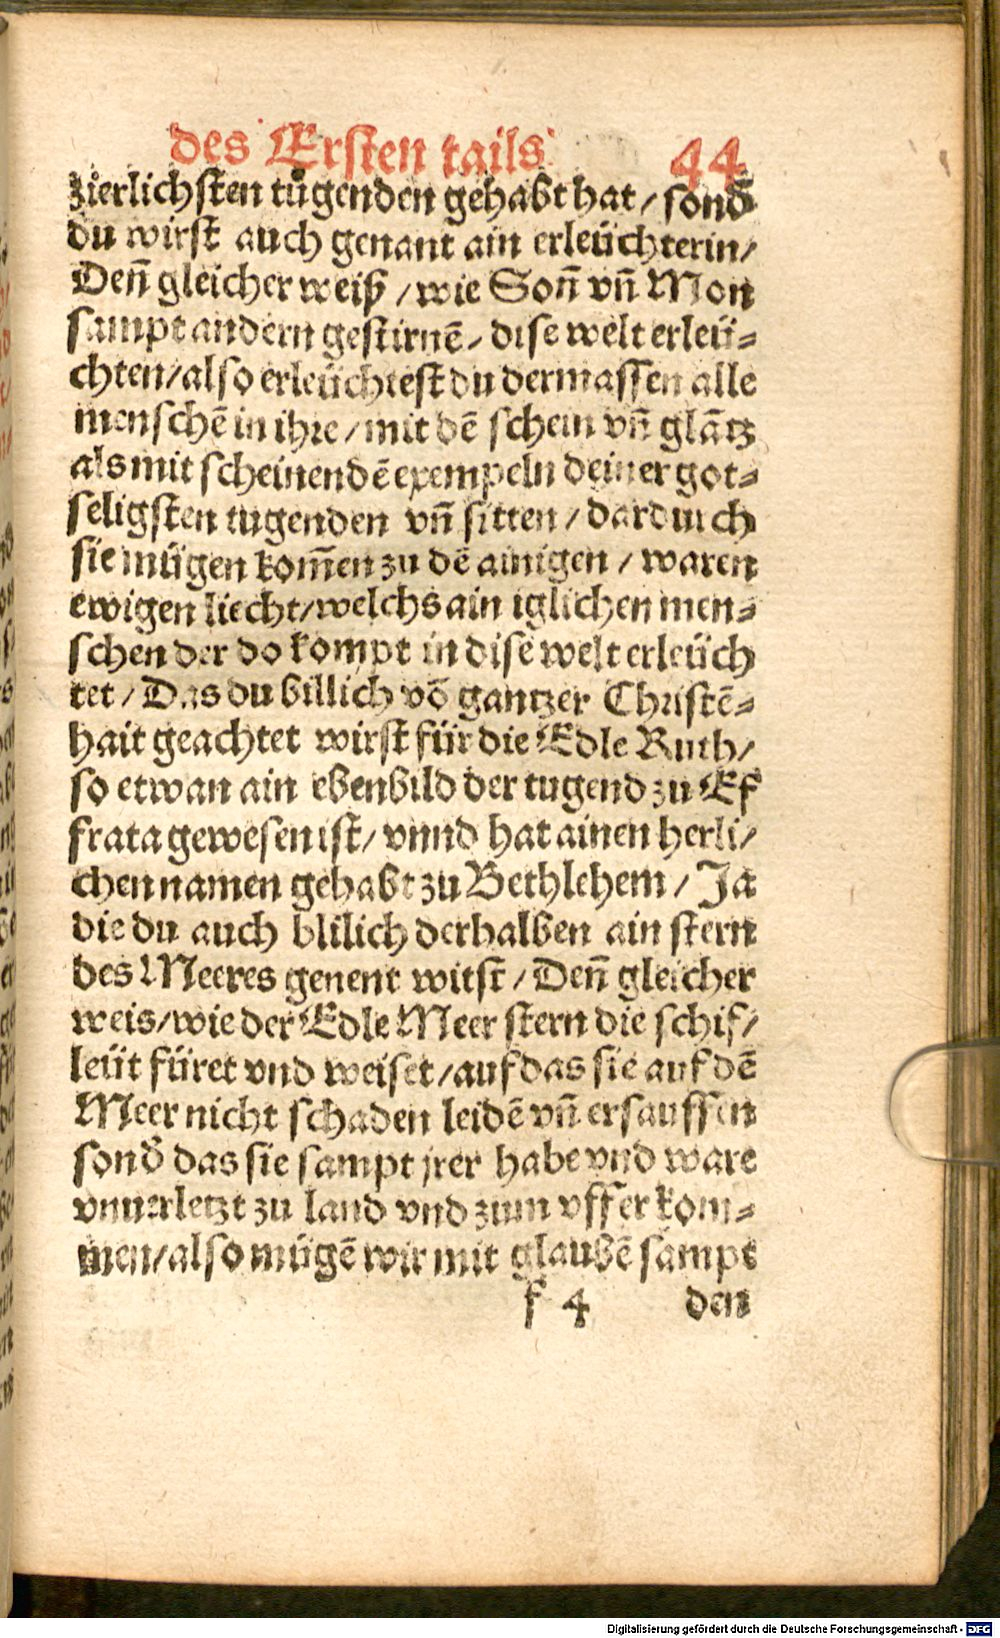 des Ersten tails 44
zierlichsten tůgenden gehabt hat / sond̄
du wirst auch genant ain erleüchterin /
Deñ gleicher weiß / wie Soñ vñ Mon
sampt andern gestirnē / dise welt erleü⸗
chten / also erleüchtest du dermassen alle
menschē in ihre / mit dē schein vñ glātz
als mit scheinendē exempeln deiner got⸗
seligsten tugenden vñ sitten / darduich
sie mügen kom̄en zu dē ainigen / waren
ewigen liecht / welchs ain iglichen men⸗
schen der do kompt in dise welt erleüch
tet / Das du billich vō gantzer Christē⸗
hait geachtet wirst für die Edle Ruth /
so etwan ain ebenbild der tugend zu Ef
frata gewesen ist / vnnd hat ainen herli /
chen namen gehabt zu Bethlehem / Ja
die du auch blilich derhalben ain stern
des Meeres genent witst / Deñ gleicher
weis / wie der Edle Meer stern die schif /
leüt füret vnd weiset / auf das sie auf dē
Meer nicht schaden leidē vñ ersauffen
sond̄ das sie sampt jrer habe vnd ware
vnuerletzt zu land vnd zum vffer kom⸗
men / also mügē wir mit glaubē sampt
f 4 den
Digitalisierung gefördert durch die Deutsche Forschungsgemeinschaft - DFG